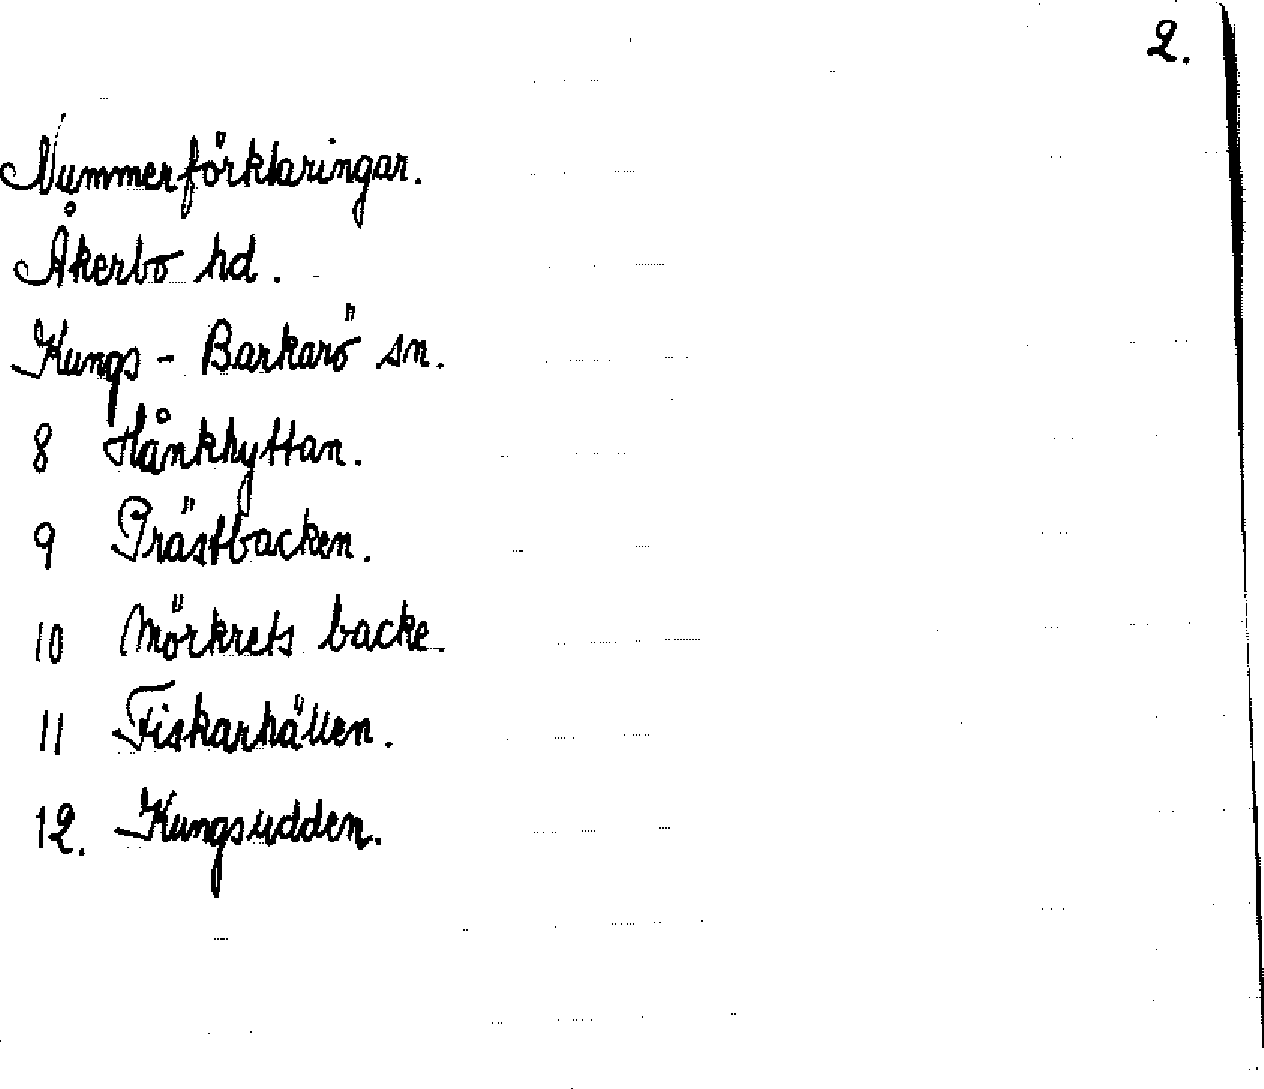 2.
Nummerförklaringar.
Åkerbo hd.
Kungs - Barkarö sn.
8 Hånkhyttan.
9 Prästbacken.
10 Mörkrets backe.
11 Fiskarhällen.
12. Kungsudden.